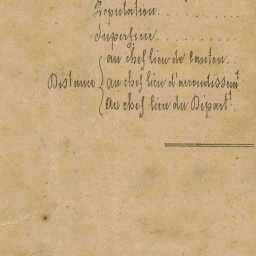 Population . . . . . . . . .
Superficie . . . . . . . . .
au chef lieu de canton . .
Distance au chef lieu d'arrondissemt
Au chef lieu du Départt.